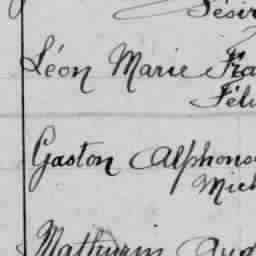 Désir
Léon Marie Fra
Féli
Gaston Alphons
Mich
Mathurin Aug